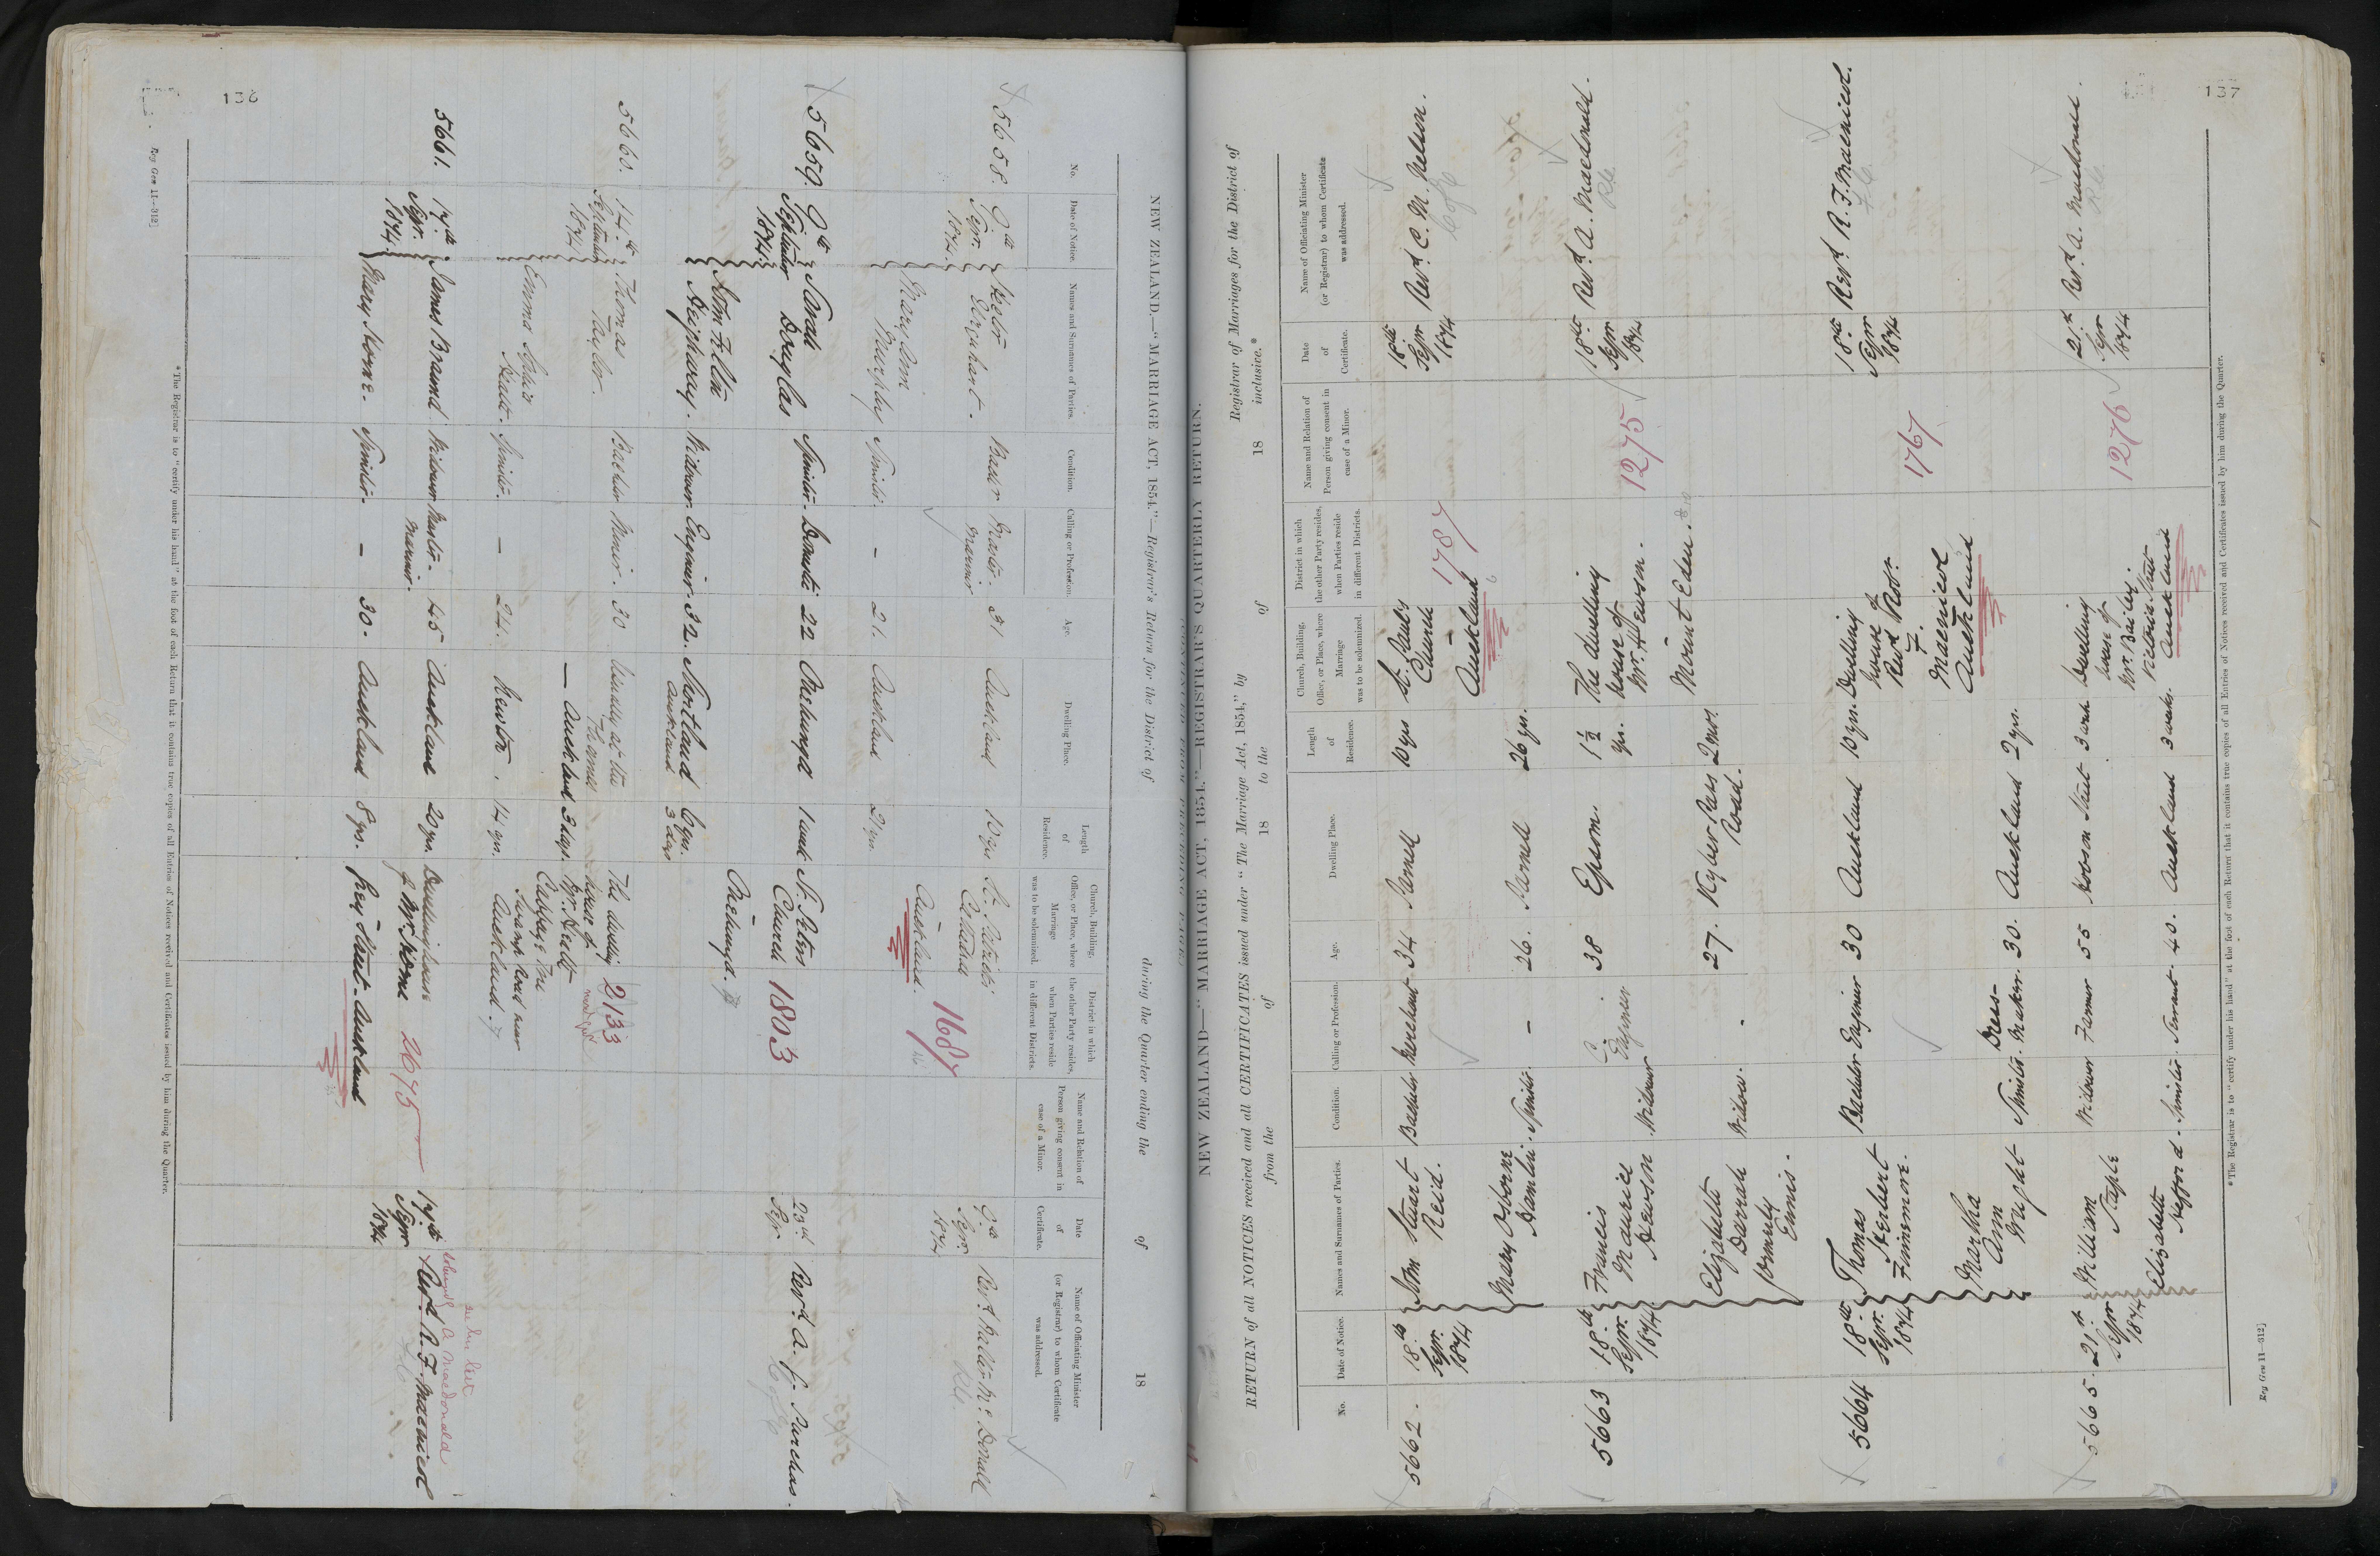 136
NEW ZEALAND.—"MARRIAGE ACT, 1854."—Registrar's Return for the District of during the Quarter ending the of 18
No. Date of Notice. Names and Surnames of Parties. Condition. Calling or Profession. Age. Dwelling Place. Length of Residence. Church, Building, Office, or Place, where Marriage was to be solemnized. District in which the other Party resides, when Parties reside in different Districts. Name and Relation of Person giving consent in case of a Minor. Date of Certificate. Name of Officiating Minister (or Registrar) to whom Certificate was addressed.
5658. 9th Sepr. 1874. Hector Urquhart. Bachr Master mariner 31 Auckland 10 yrs St. Patricks Cathedral 1687 9th Sepr 1874 Revd Walter McDonald
R.C.
Mary Ann Murphy Spinster. — 21. Auckland 21 yrs. Auckland.
5659. 9th September 1874. Sarah Douglas Spinster. Domestic 22 Onehunga 1 week St. Peters Church 1803 23rd Sepr. Revd. A. G. Purchas.
C of E
John Felix Heighway. Widower. Engineer. 32. Shortland Auckland 6 yrs. 3 days Onehunga.
5660. 14th September 1874 Thomas Taylor. Bachelor Miner. 30 Usually at the Thames — Auckland 3 days. The dwelling house of Mr. Scott 2133
Emma Scott. Spinster. — 24. Newton. 14 yrs. Cabbage Tree Swamp Road near Auckland.
5661. 17th Sepr. 1874. James Braund Widower Master mariner. 45 Auckland 20 yrs. Dwelling house of Mr. Horne 2675 17th Sepr 1874 Revd. R. F. Macnicol
A Macdonald
Mary Horne. Spinster. — 30. Auckland 8 yrs. Grey Street. Auckland
*The Registrar is to "certify under his hand" at the foot of each Return that it contains true copies of all Entries of Notices received and Certificates issued by him during the Quarter.
Reg Gen 11—312]
137
NEW ZEALAND—"MARRIAGE ACT, 1854."—REGISTRAR'S QUARTERLY RETURN.
(CONTINUED FROM PRECEDING PAGE.)
RETURN of all NOTICES received and all CERTIFICATES issued under "The Marriage Act, 1854," by Registrar of Marriages for the District of
from the of 18 to the of 18 inclusive.*
No. Date of Notice. Names and Surnames of Parties. Condition. Calling or Profession. Age. Dwelling Place. Length of Residence. Church, Building, Office, or Place, where Marriage was to be solemnized. District in which the other Party resides, when Parties reside in different Districts. Name and Relation of Person giving consent in case of a Minor. Date of Certificate. Name of Officiating Minister (or Registrar) to whom Certificate was addressed.
5662. 18th Sepr. 1874 John Stuart Reid. Bachelor Merchant 34 Parnell 10 yrs St. Pauls Church 1787 18th Sepr 1874 Revd. C. M. Nelson.
C of E
Mary Osborne Hamlin. Spinster. — 26. Parnell 26 yrs. Auckland
5663 18th Sepr. 1874. Francis Maurice Hewson Widower C. Engineer 38 Epsom 1½ yrs. The dwelling house of Mr. Hewson. 1275 18th Sepr 1874 Revd. A. Macdonald.
Elizabeth Darrah formerly Ennis. Widow. - 27. Khyber Pass Road. 2 mos. Mount Eden.
5664 18th Sepr. 1874 Thomas Herbert Finnemore. Bachelor Engineer 30 Auckland 10 yrs. Dwelling house of Revd Robt. F. Macnicol Auckland 1767 18th Sepr 1874 Revd R. F. Macnicol.
Martha Ann Wright Spinster. Dress-maker. 30. Auckland 2 yrs.
5665. 21st Sepr 1874 William Staple Widower Farmer 55 Hobson Street 3 weeks Dwelling house of Mr. Bailey. 1276 21st Sepr 1874 Revd. A. Macdonald.
Elizabeth Hefford. Spinster. Servant. 40. Auckland 3 weeks. Victoria Street Auckland
*The Registrar is to "certify under his hand" at the foot of each Return that it contains true copies of all Entries of Notices received and Certificates issued by him during the Quarter.
Reg Gen 11—312]